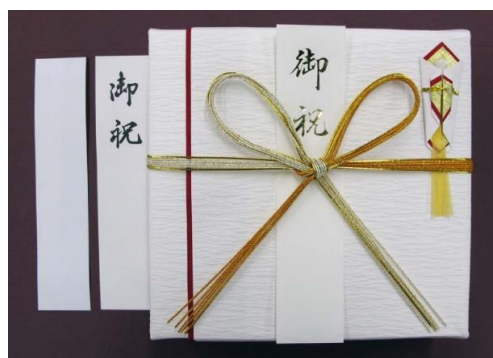 御祝
御祝